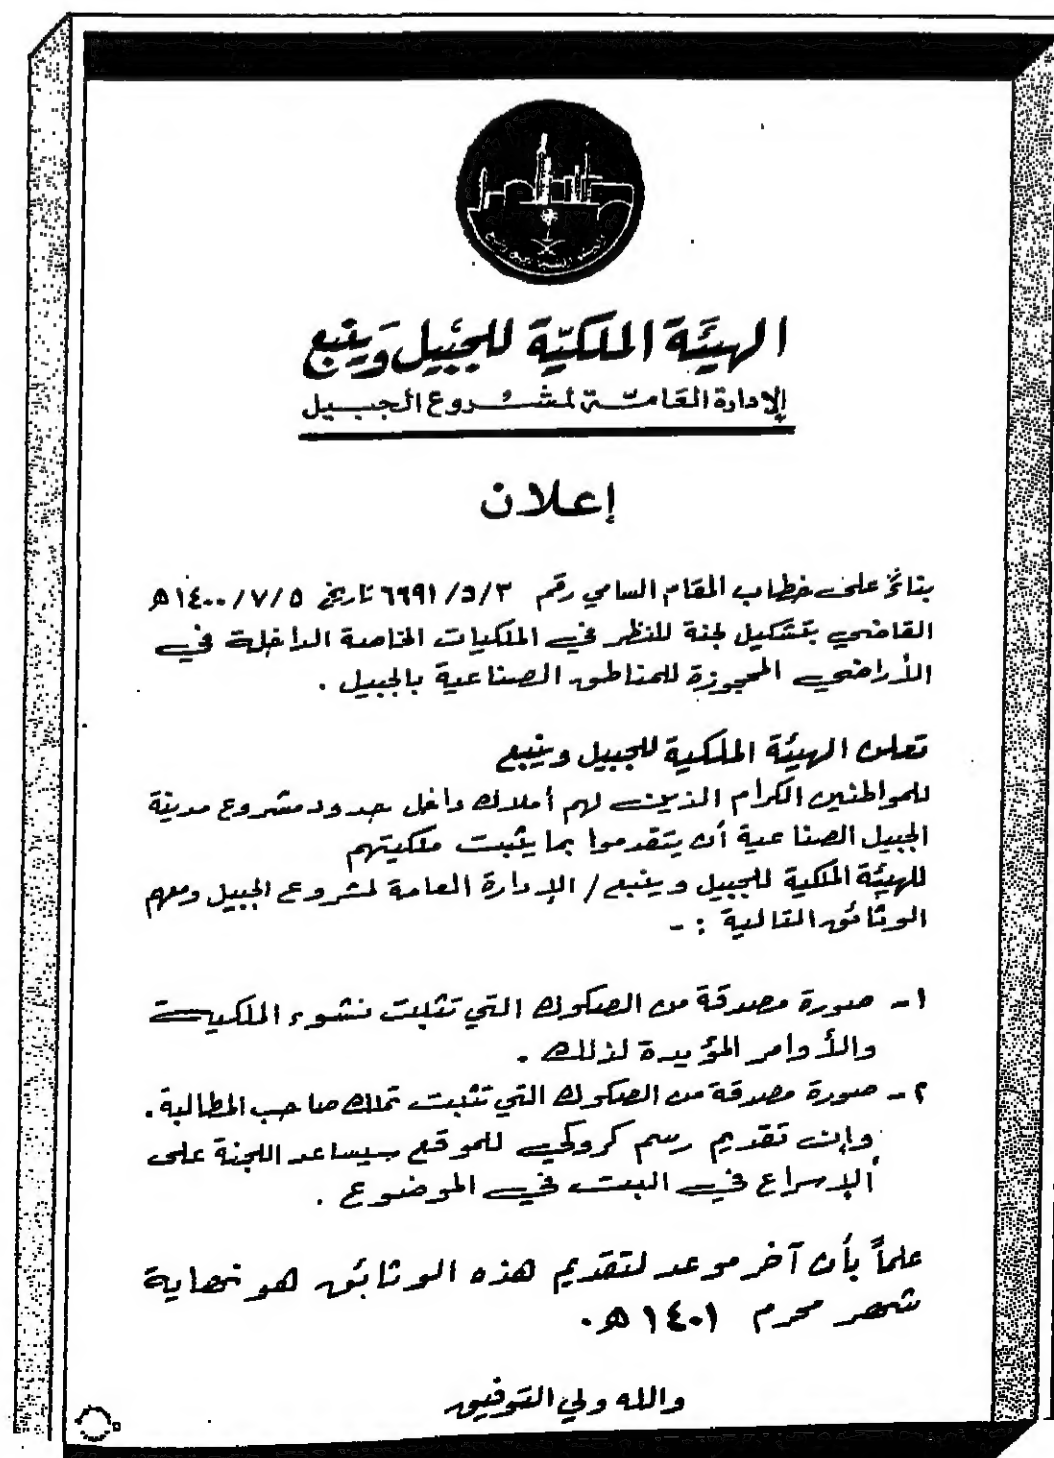 الهيئة الملكية للجبيل وينبع
الهيئة الملكيّة للجبَيل وَينبع
الإدارة العَامـة لمشـروع الجبـيل
إعلان
بناءً على خطاب المقام السامي رقم ٦٦٩١/٥/٣ تاريخ ١٤٠٠/٧/٥هـ
القاضي بتشكيل لجنة للنظر في الملكيات الخاصة الداخلة في
الأراضي المحجوزة للمناطق الصناعية بالجبيل .
تعلن الهيئة الملكية للجبيل وينبع
للمواطنين الكرام الذين لهم أملاك داخل حدود مشروع مدينة
الجبيل الصناعية أن يتقدموا بما يثبت ملكيتهم
للهيئة الملكية للجبيل وينبع / الإدارة العامة لمشروع الجبيل ومعهم
الوثائق التالية : -
١- صورة مصدقة من الصكوك التي تثبت نشوء الملكية
والأوامر المؤيدة لذلك .
٢- صورة مصدقة من الصكوك التي تثبت تملك صاحب المطالبة .
وإن تقديم رسم كروكي للموقع سيساعد اللجنة على
الإسراع في البت في الموضوع .
علماً بأن آخر موعد لتقديم هذه الوثائق هو نهاية
شهر محرم ١٤٠١هـ .
والله ولي التوفيق